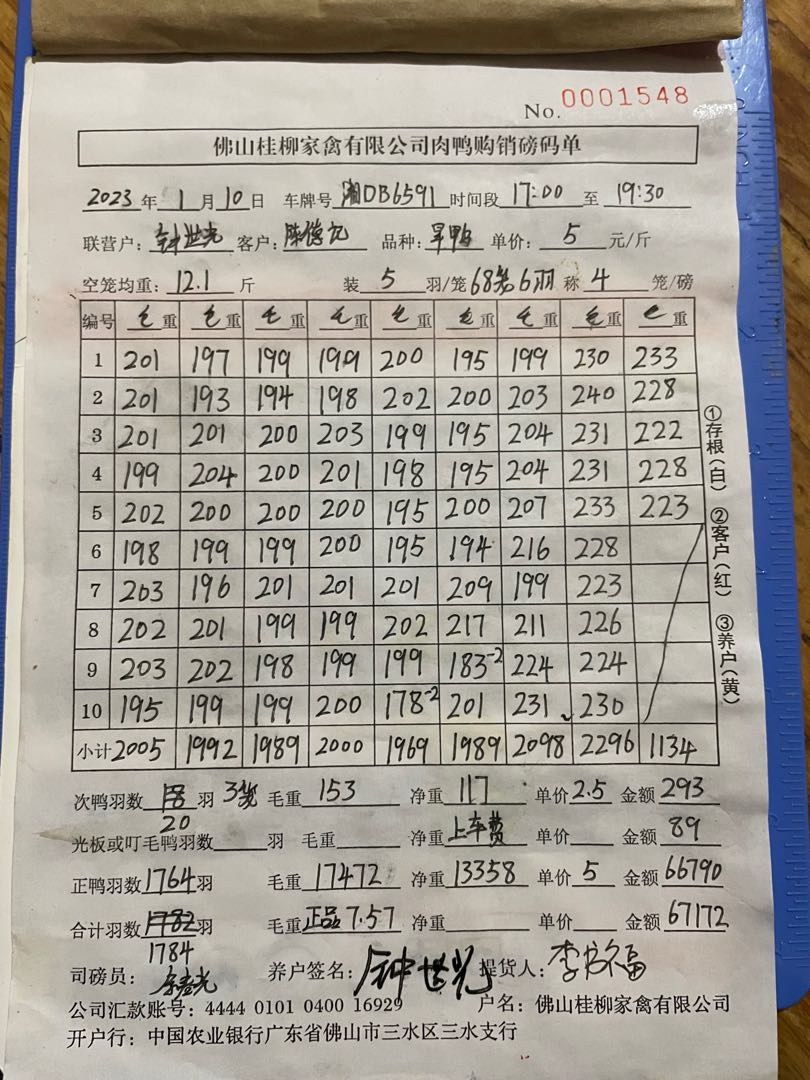 No. 0001548
佛山桂柳家禽有限公司肉鸭购销磅码单
2023年1月10日 车牌号 湘DB6591 时间段 17:00 至 19:30
联营户：钟世光 客户：陈德记 品种：旱鸭 单价：5 元/斤
空笼均重：12.1 斤 装 5 羽/笼 68笼6羽 称 4 笼/磅
编号 毛重 毛重 毛重 毛重 毛重 毛重 毛重 毛重 毛重
1 201 197 199 199 200 195 199 230 233
2 201 193 194 198 202 200 203 240 228
3 201 201 200 203 199 195 204 231 222
4 199 204 200 201 198 195 204 231 228
5 202 200 200 200 195 200 207 233 223
6 198 199 199 200 195 194 216 228
7 203 196 201 201 201 209 199 223
8 202 201 199 199 202 217 211 226
9 203 202 198 199 199 183-2 224 224
10 195 199 199 200 178-2 201 231 230
小计 2005 1992 1989 2000 1969 1989 2098 2296 1134
次鸭羽数 羽 3笼 毛重 153 净重 117 单价 2.5 金额 293
20
光板或叮毛鸭羽数 羽 毛重 净重 上车费 单价 金额 89
正鸭羽数 1764 羽 毛重 17472 净重 13358 单价 5 金额 66790
合计羽数 1782 羽 毛重 正品 7.57 净重 单价 金额 67172
1784
司磅员： 养户签名：钟世光 提货人：李名福
公司汇款账号：4444 0101 0400 16929 户名：佛山桂柳家禽有限公司
开户行：中国农业银行广东省佛山市三水区三水支行
①存根(白) ②客户(红) ③养户(黄)